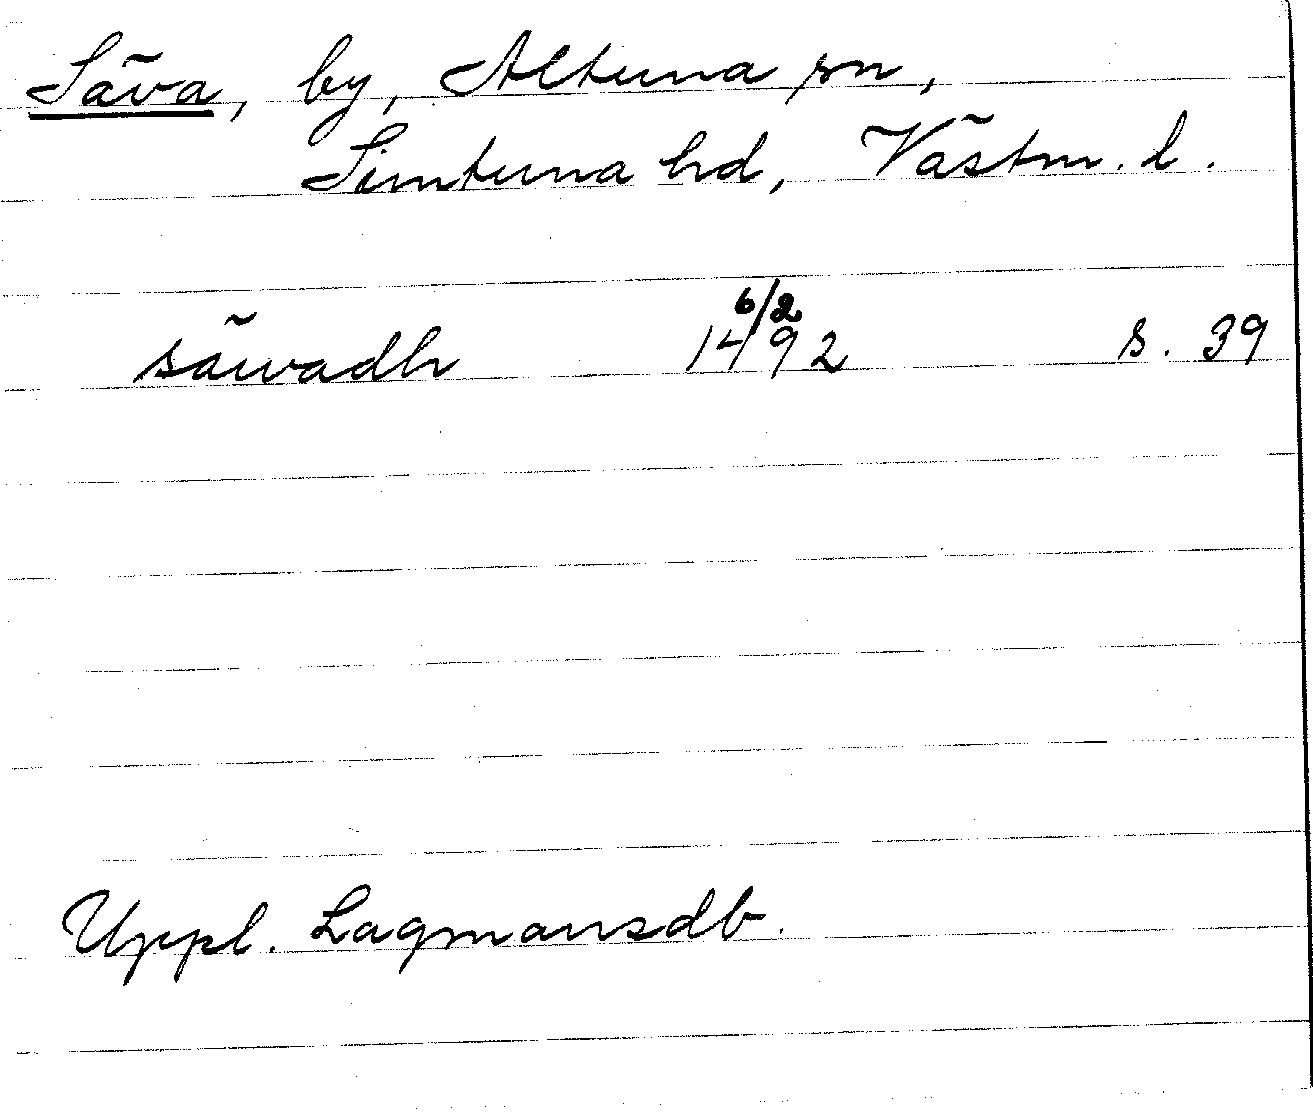 Säva, by, Altuna sn,
Simtuna hd, Västm. l.
säwadh 6/2 1492 s. 39
Uppl. Lagmansdb.